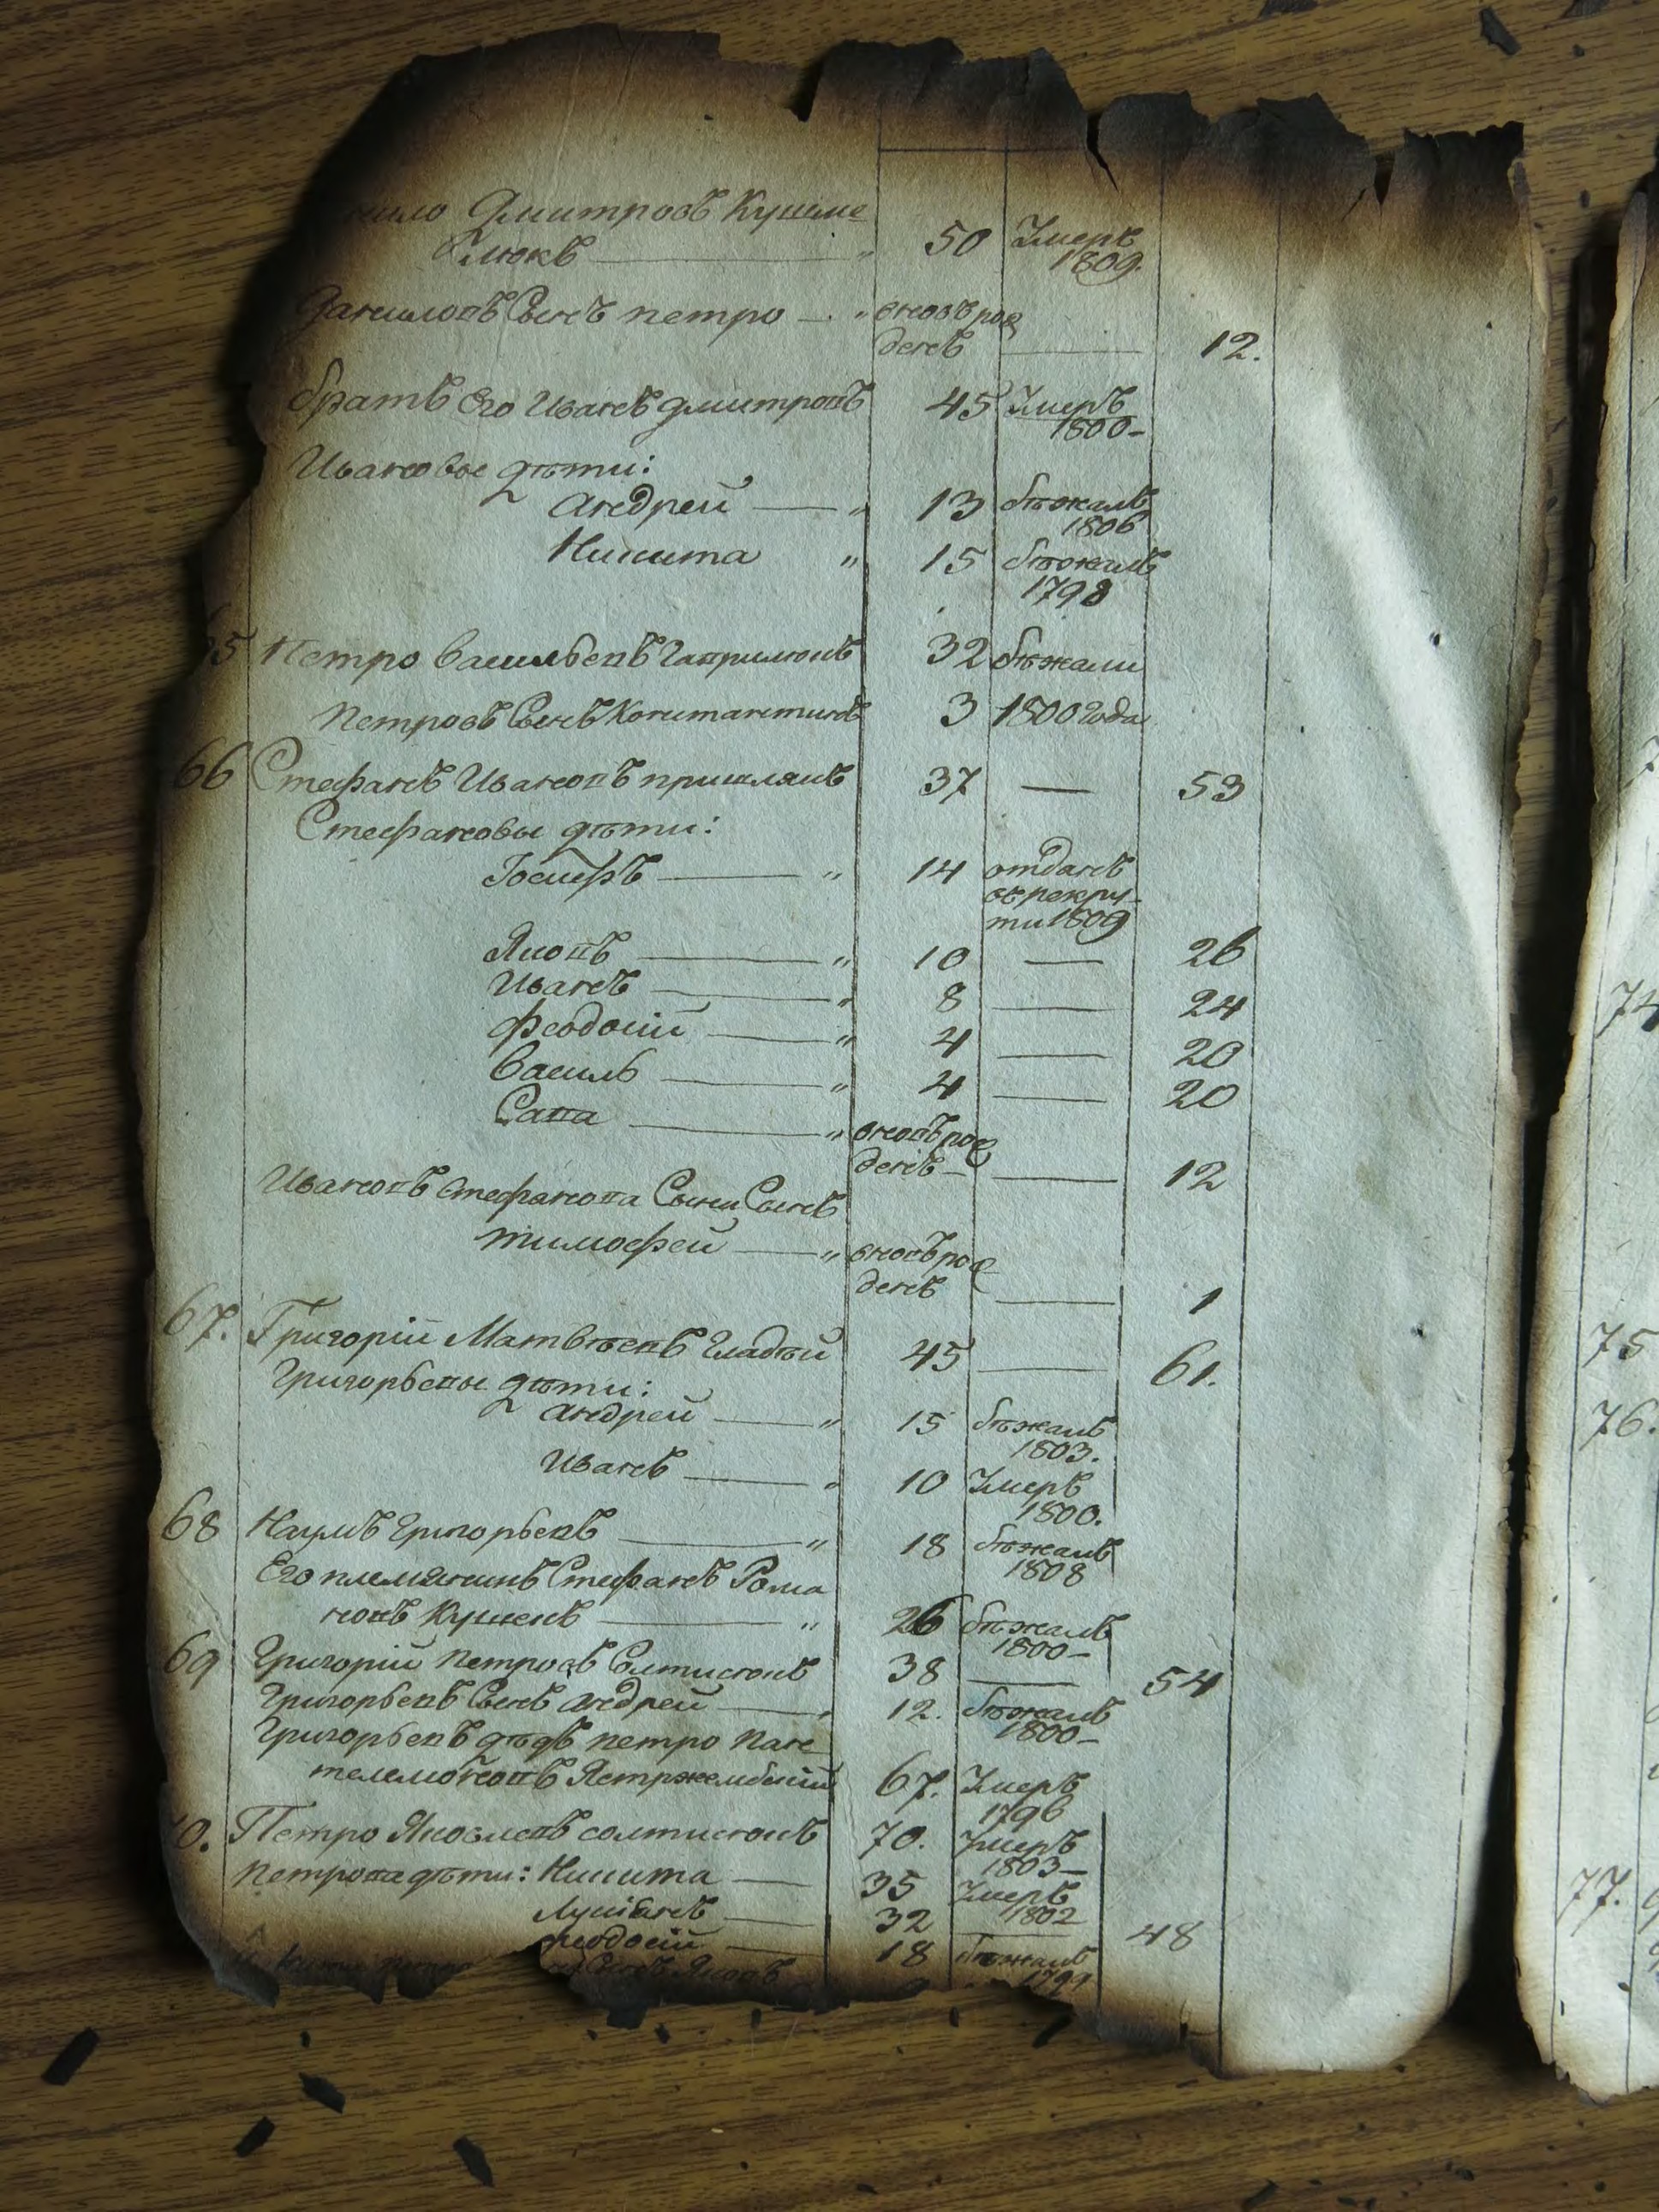 Дмитровъ Кушме
люкъ — " 50 Умеръ
1809.
Даниловъ Сынъ петро — " вновърож
денъ — 12.
братъ Его Иванъ дмитровъ 45 Умеръ
1800-
Ивановые дѣти:
андрей — " 13 бѣжалъ
1806
Никита " 15 бѣжалъ
1798
5 Петро васильевъ Гаврилюкъ 32 бѣжали
Петровъ Сынъ Константинъ 3 1800 года
66 Стефанъ Ивановъ пришлякъ 37 — 53
Стефановы дѣти:
Іосифъ — " 14 отданъ
въ рекру-
ти 1809
Яковъ — " 10 — 26
Иванъ — " 8 — 24
феодосій — " 4 — 20
василь — " 4 — 20
Сава — " вновъ рож
денъ — 12
Ивановъ Стефанова Сына Сынъ
тимофей — " вновъ рож
денъ — 1
67. Григорій Матвѣевъ Гладкій 45 — 61.
Григорьевы дѣти:
андрей — " 15 бѣжалъ
1803.
Иванъ — " 10 Умеръ
1800.
68 Наумъ Григорьевъ — " 18 бѣжалъ
1808
Его племянникъ Стефанъ Рома
новъ — " 26 бѣжалъ
1800-
69 Григорій петровъ Солтисюкъ 38 — 54
Григорьевъ Сынъ андрей — " 12. бѣжалъ
1800-
Григорьевъ дѣдъ петро Пан
телемоновъ Ястржембскій 67. Умеръ
1796
0. Петро Яковлевъ солтисюкъ 70. Умеръ
1803-
петрова дѣти: Никита — 35 Умеръ
1802
Лукіянъ — 32 — 48
феодосій — 18 бѣжалъ
1799
Сынъ Яковъ
74
75
76.
77.